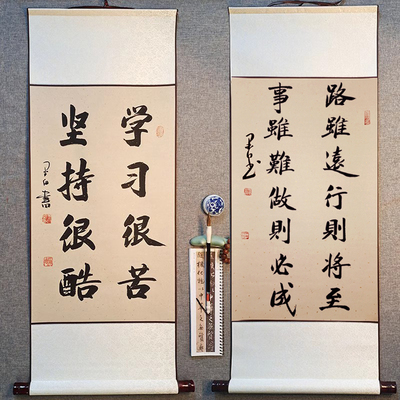 学习很苦
坚持很酷
路雖遠行則將至
事雖難做則必成